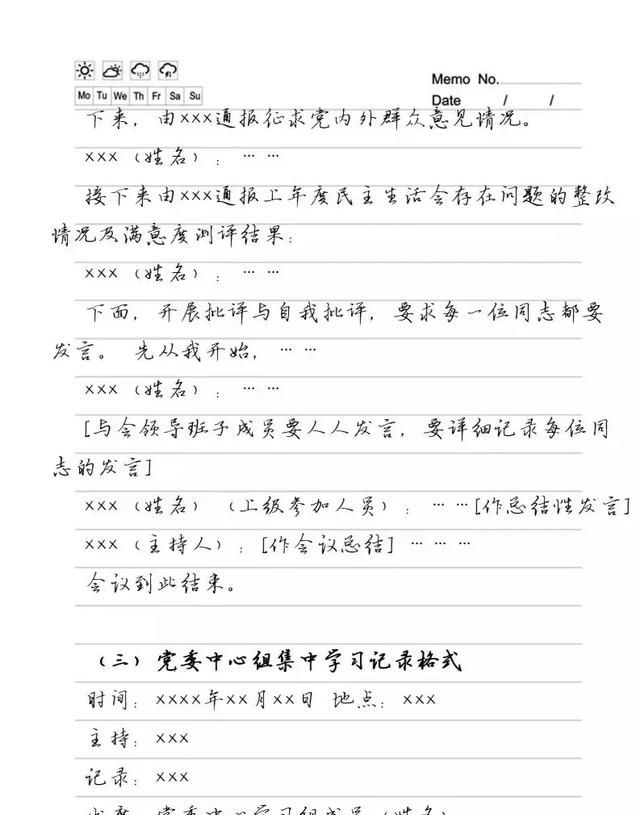 Memo No.
Mo Tu We Th Fr Sa Su
Date / /
下来，由×××通报征求党内外群众意见情况。
×××（姓名）：… …
接下来由×××通报上年度民主生活会存在问题的整改
情况及满意度测评结果：
×××（姓名）：… …
下面，开展批评与自我批评，要求每一位同志都要
发言。 先从我开始，… …
×××（姓名）：… …
[与会领导班子成员要人人发言，要详细记录每位同
志的发言]
×××（姓名）（上级参加人员）：… …[作总结性发言]
×××（主持人）：[作会议总结] … …
会议到此结束。
（三）党委中心组集中学习记录格式
时间：××××年××月××日 地点：×××
主持：×××
记录：×××
出席：党委中心学习组成员（姓名）